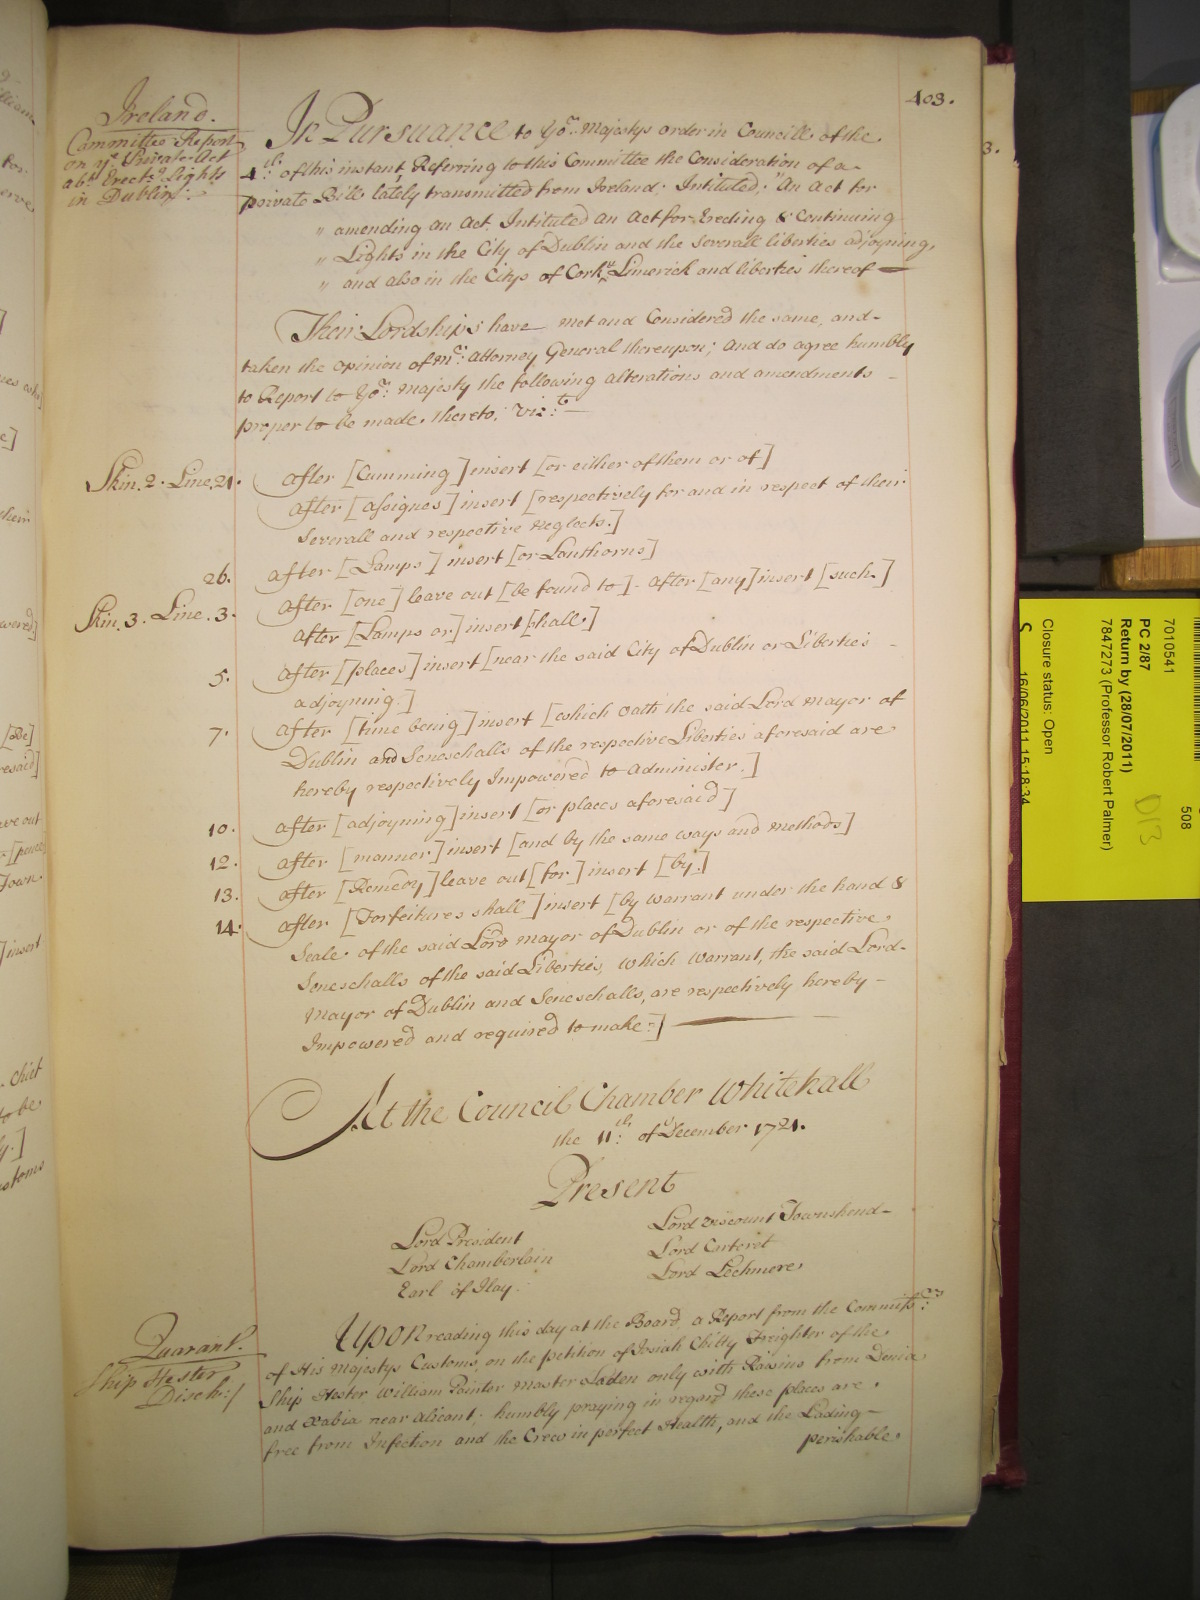 403.
Ireland.
Committee Report
on ye. Private Act
abt. Erectg. Lights
in Dublin.
In Pursuance to Yor. Majestys order in Councill of the
4th: of this instant, Referring to this Committee the Consideration of a
private Bill lately transmitted from Ireland. Intituled, "An Act for
" amending an Act, Intituled an Act for Erecting & Continuing
" Lights in the City of Dublin and the Severall liberties adjoyning,
" and also in the Citys of Cork & Limerick and liberties thereof
Their Lordships have met and Considered the same, and
taken the opinion of Mr. Attorney General thereupon; and do agree humbly
to Report to Yor. Majesty the following alterations and amendments
proper to be made thereto; vizt.
Skin. 2. Line 21. after [Cumming] insert [or either of them or of]
after [assignes] insert [respectively for and in respect of their
Severall and respective Neglects.]
26. after [Lamps] insert [or Lanthorns]
Skin. 3. Line. 3. after [one] leave out [be found to]. after [any] insert [such]
after [Lamps or] insert [shall.]
5. after [places] insert [near the said City of Dublin or Liberties
adjoyning.]
7. after [time being] insert [which oath the said Lord Mayor of
Dublin and Seneschalls of the respective Liberties aforesaid are
hereby respectively Impowered to Administer.]
10. after [adjoyning] insert [or places aforesaid]
12. after [manner] insert [and by the same ways and methods]
13. after [Remedy] leave out [for] insert [by.]
14. after [Forfeitures shall] insert [by warrant under the hand &
Seale of the said Lord Mayor of Dublin or of the respective
Seneschalls of the said Liberties, which Warrant, the said Lord
Mayor of Dublin and Seneschalls, are respectively hereby
Impowered and required to make.]
At the Council Chamber Whitehall
the 11th: of December 1721.
Present
Lord President
Lord Chamberlain
Earl of Ilay.
Lord Viscount Townshend
Lord Carteret
Lord Lechmere
Quarant.
Ship Hester
Disch:
Upon reading this day at the Board, a Report from the Commissrs:
of His Majestys Customs, on the petition of Josiah Chitty Freighter of the
Ship Hester William Painter Master Laden only with Raisins from Denia
and Xabia near Alicant, humbly praying in regard these places are
free from Infection and the Crew in perfect Health, and the Lading
perishable
3.
7010541
508
PC 2/87
Return by (28/07/2011)
7847273 (Professor Robert Palmer)
D13
Closure status: Open
16/06/2011 15:18:34